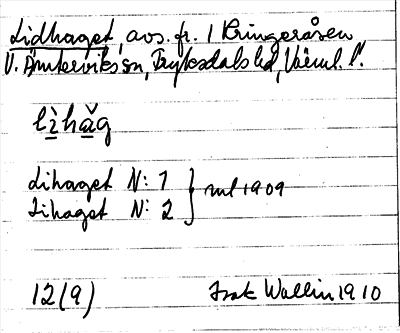 Lidhaget, avs. fr. 1 Kringeråsen
V. Ämterviks sn, Fryksdals hd, Värml. l.
lìhǎg
Lihaget N: 1
Lihaget N: 2 } ml 1909
12(9) Isak Wallin 1910